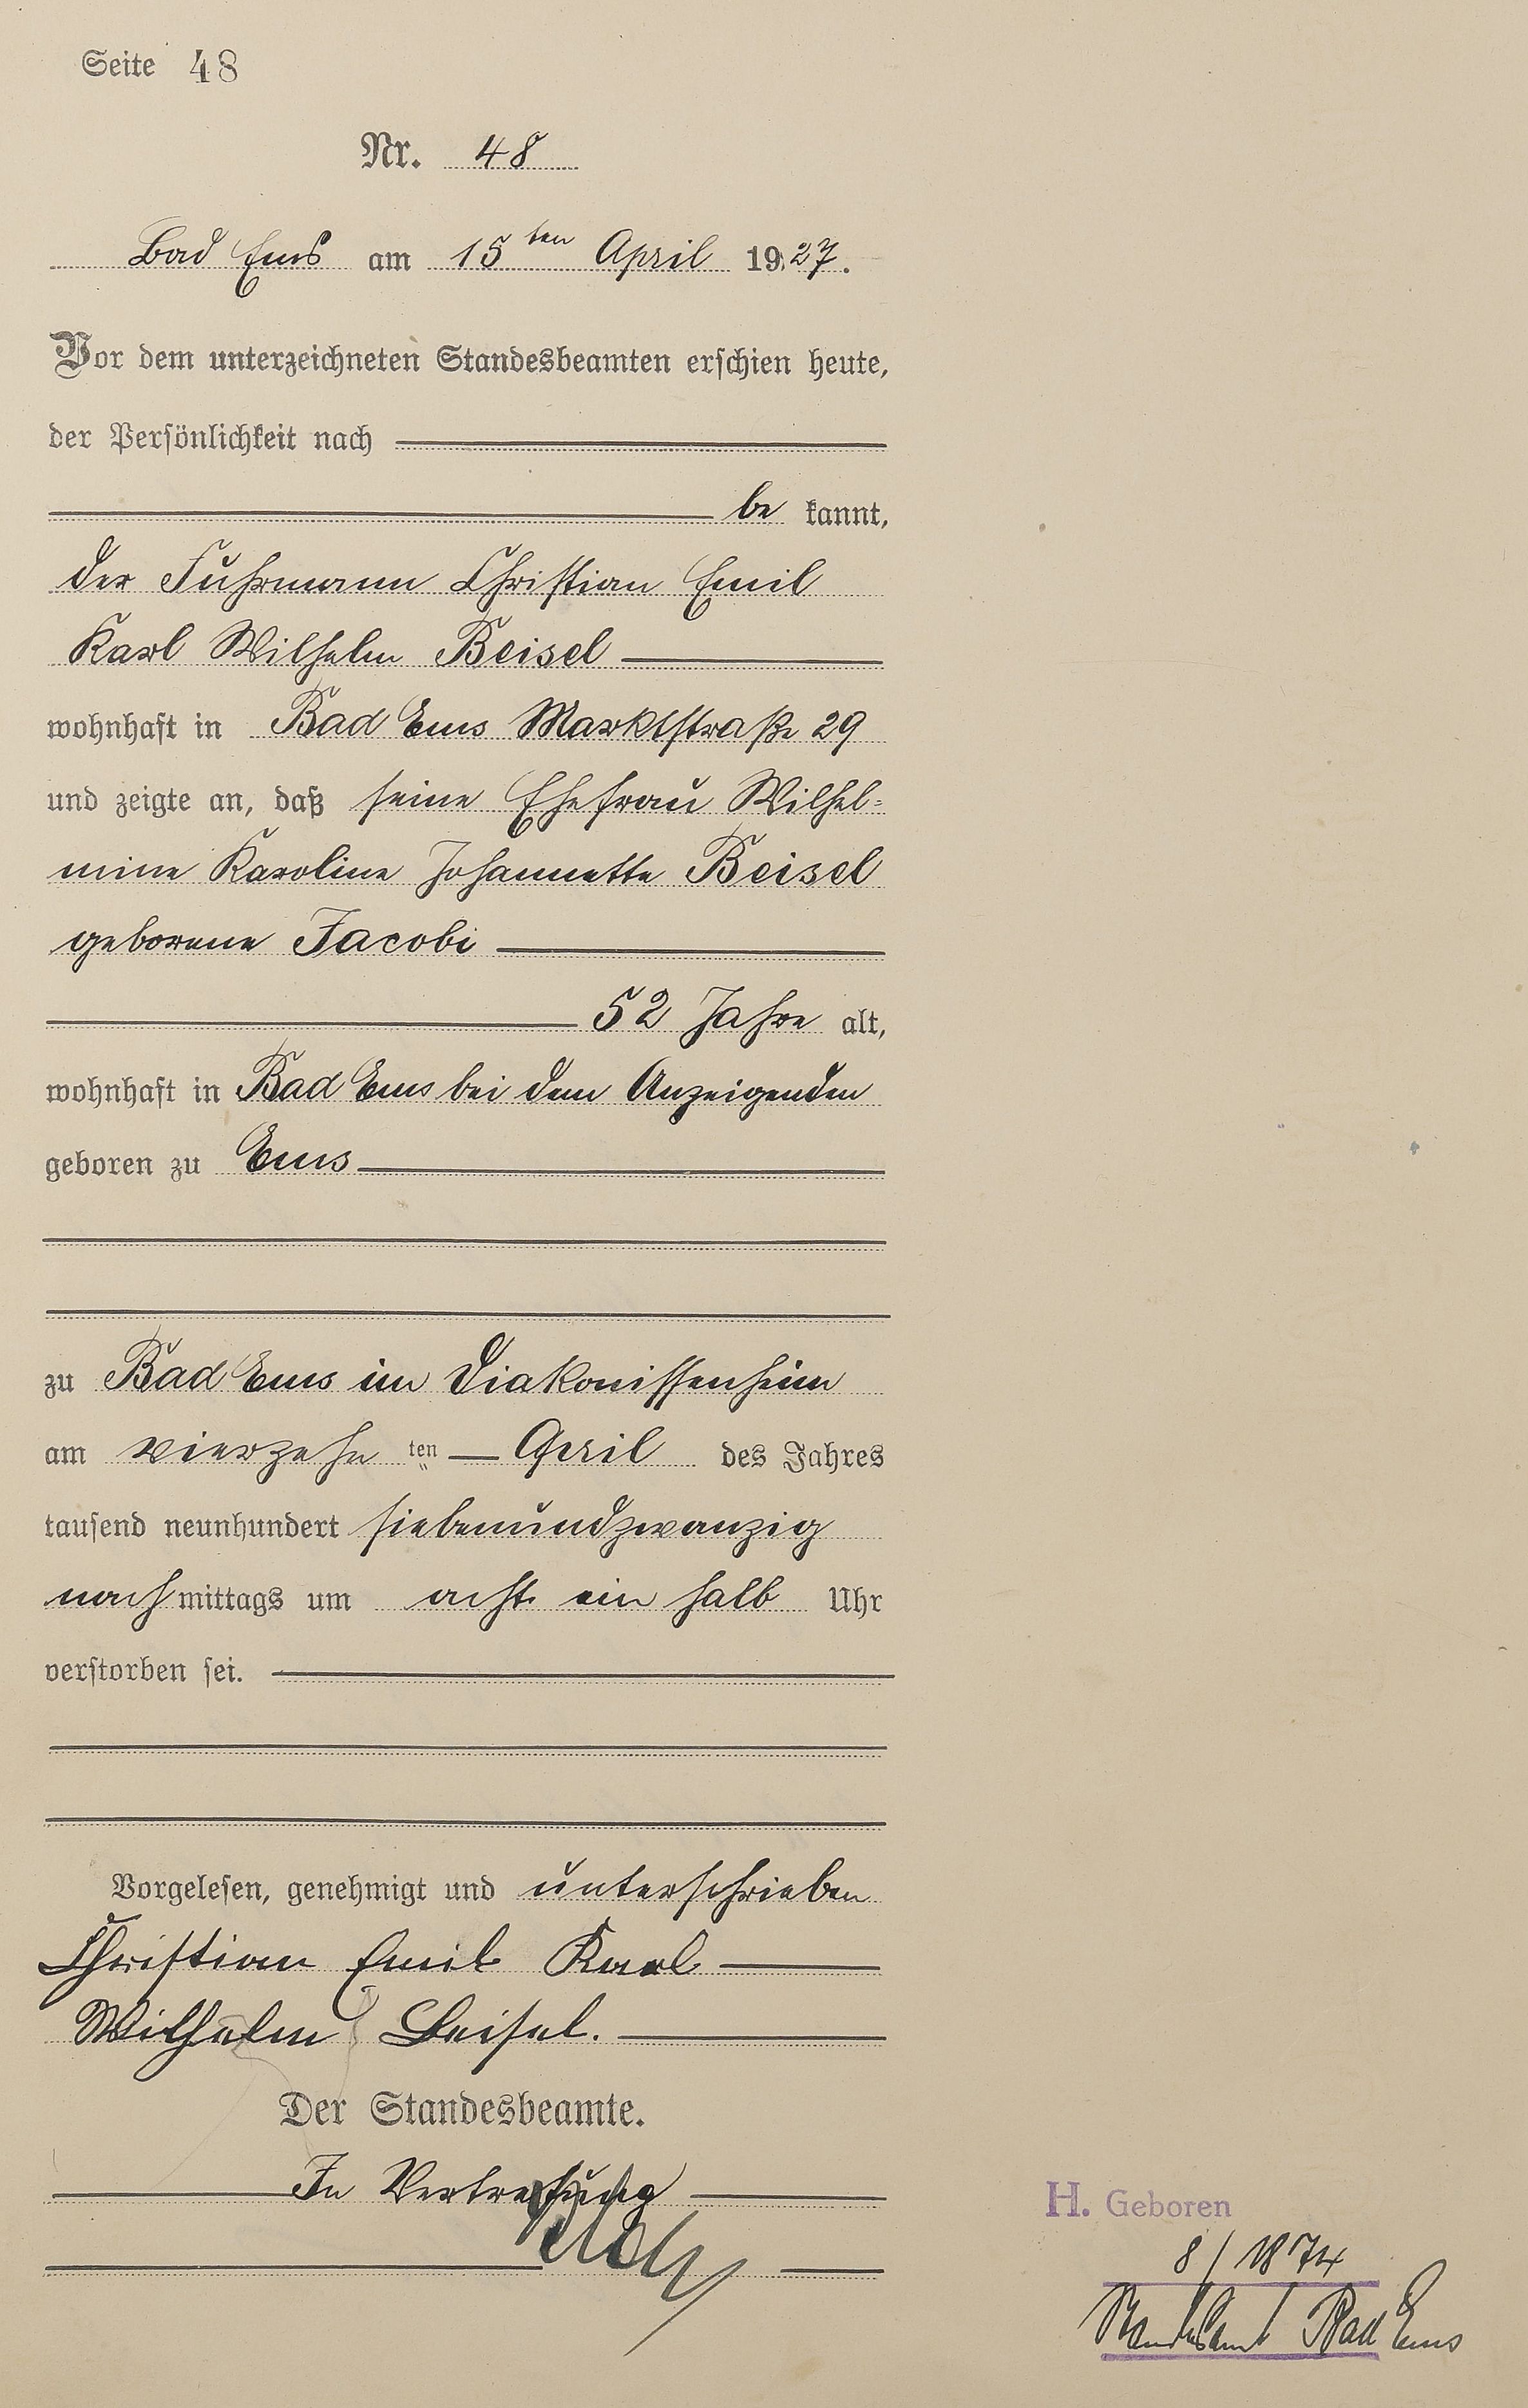 Seite 48
Nr. 48
Bad Ems am 15ten April 1927.
Vor dem unterzeichneten Standesbeamten erschien heute,
der Persönlichkeit nach
be kannt,
der Fuhrmann Christian Emil
Karl Wilhelm Beisel
wohnhaft in Bad Ems Marktstraße 29
und zeigte an, daß seine Ehefrau Wilhel=
mine Karoline Johannette Beisel
geborene Jacobi
52 Jahre alt,
wohnhaft in Bad Ems bei dem Anzeigenden
geboren zu Ems
zu Bad Ems im Diakonissenheim
am vierzehn ten April des Jahres
tausend neunhundert siebenundzwanzig
nachmittags um acht ein halb Uhr
verstorben sei.
Vorgelesen, genehmigt und unterschrieben
Christian Emil Karl
Wilhelm Beisel.
Der Standesbeamte.
In Vertretung
H. Geboren
8/1874
Standesamt Bad Ems